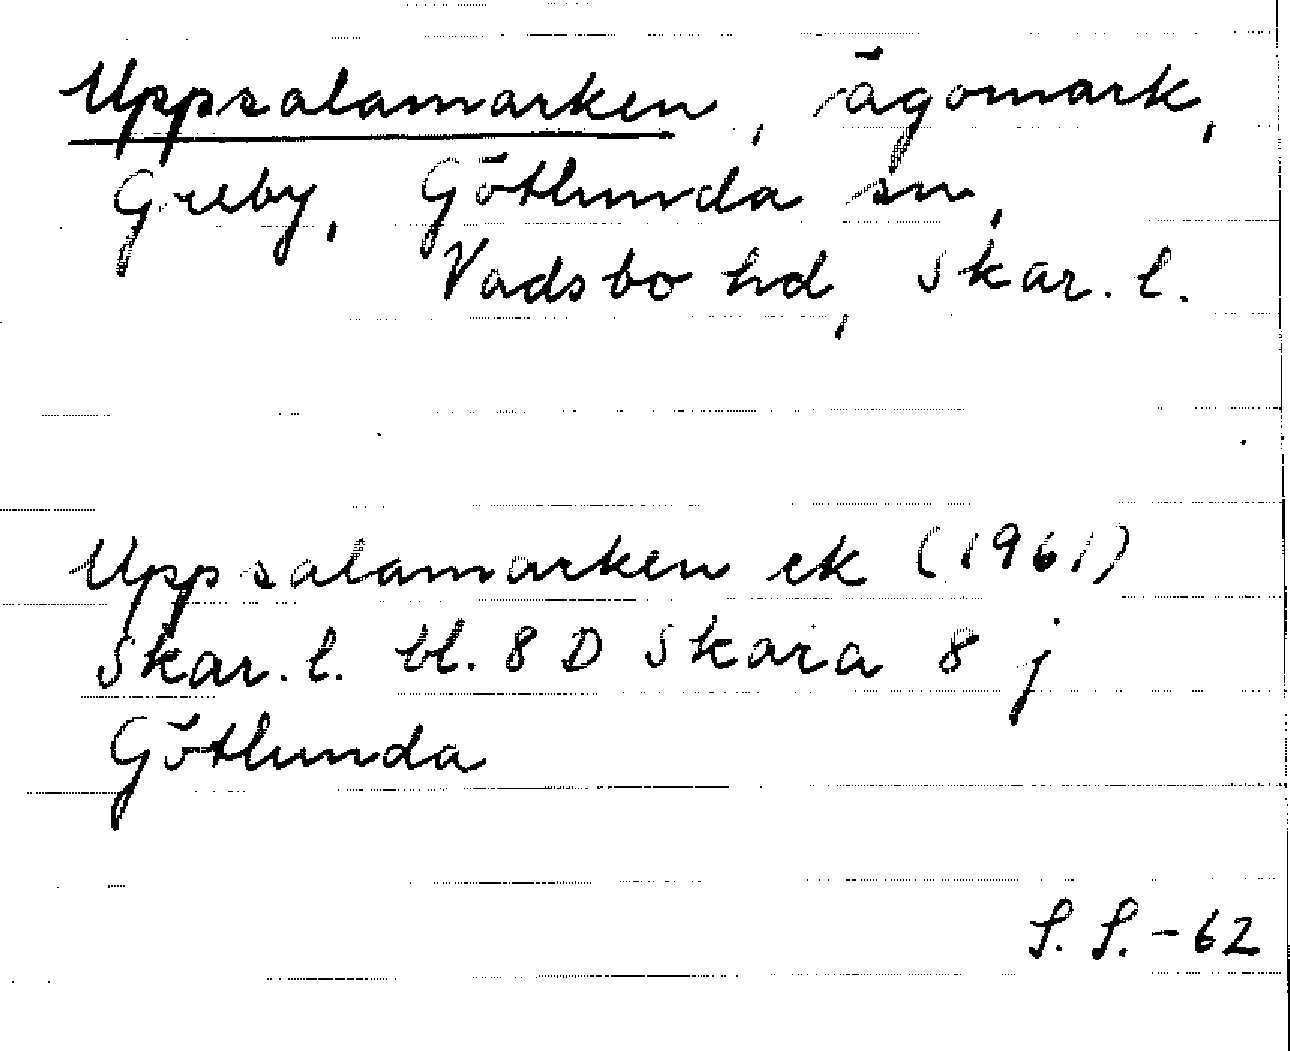 Uppsalamarken, ägomark,
Greby, Götlunda sn,
Vadsbo hd, Skar. l.
Uppsalamarken ek (1961)
Skar. l. bl. 8 D Skara 8 j
Götlunda
S. S. - 62